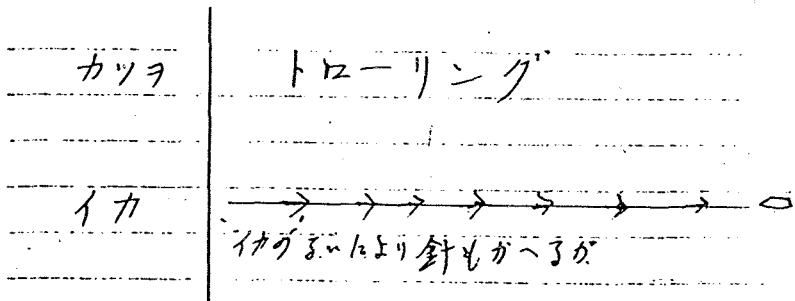 カツヲ トローリング
イカ
イカのるいにより針もかへるが